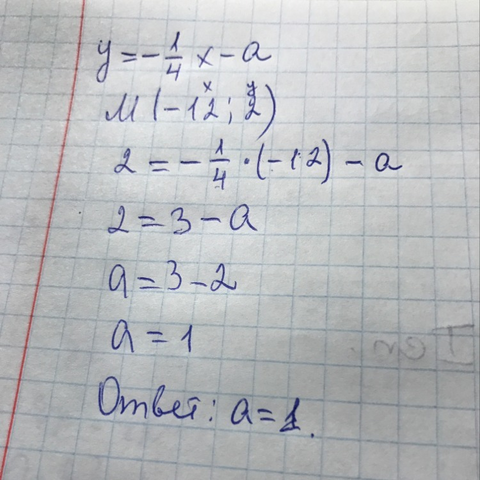 y = -1/4 x - a
x y
M (-12; 2)
2 = -1/4 · (-12) - a
2 = 3 - a
a = 3 - 2
a = 1
Ответ: a = 1.